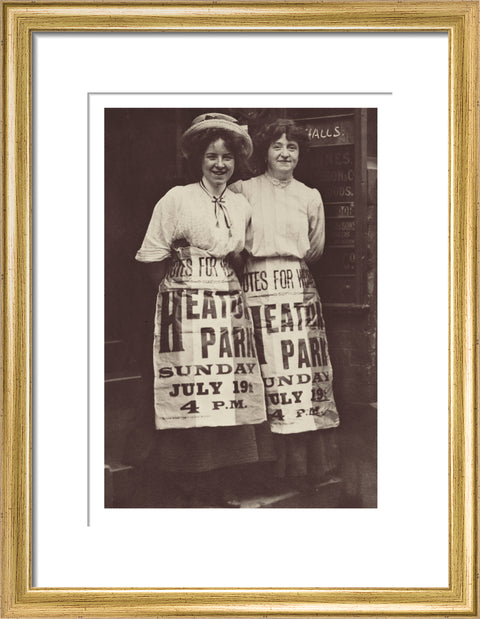 HALLS.
OTES FOR
HEATON
PARK
SUNDAY
JULY 19
4 P.M.
OTES FOR
HEATON
PARK
UNDAY
ULY 19
4 P.M.